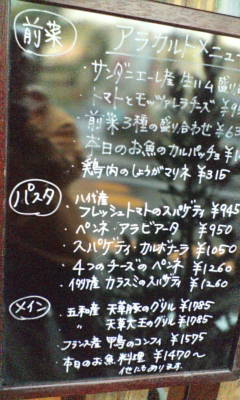 前菜
アラカルトメニュー
・サンダニエール産 生ハム 盛り
・トマトとモッツァレラチーズ ¥9
・前菜3種の盛り合わせ ¥6
・本日のお魚のカルパッチョ ¥1
・鶏肉のしょうがマリネ ¥315
パスタ
・八代産
フレッシュトマトのスパゲティ ¥945
・ペンネ・アラビアータ ¥950
・スパゲティ・カルボナーラ ¥1050
・4つのチーズのペンネ ¥1260
・イタリア産 カラスミのスパゲティ ¥1260
メイン
・五和産 天草豚のグリル ¥1785
・〃 天草大王のグリル ¥1785
・フランス産 鴨のコンフィ ¥1575
・本日のお魚料理 ¥1470〜
他にもあります。